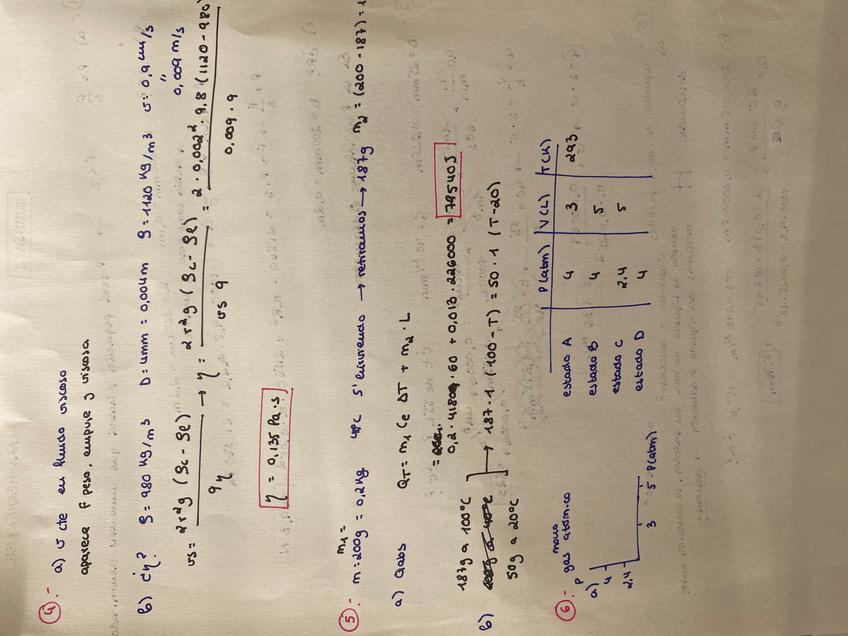 ④.- a) v cte en fluido viscoso
aparece F peso, empuje y viscosa
b) ¿η? ρ = 980 kg/m3 D = 4mm = 0,004m ρ = 1120 kg/m3 v = 0,9 cm/s
0,009 m/s
vs = 2r²g (ρc - ρl) / 9η → η = 2r²g (ρc - ρl) / vs 9 = 2 · 0,002² · 9.8 (1120 - 980) / 0.009 · 9
η = 0,135 Pa·s
⑤.- m1 =
m = 200g = 0,2 kg 40ºC 5' hirviendo → retiramos → 187g m2 = (200 - 187) = 1
a) Qabs QT = m1 Ce ΔT + m2 · L
=
0,2 · 4180 · 60 + 0,013 · 226000 = 79540J
b) 187g a 100°C
200g a 40°C → 187 · 1 (100 - T) = 50 · 1 (T - 20)
50g a 20°C
⑥.- gas monoatómico
a) P
4
2,4
3 5 P(atm)
P(atm) V(L) T(K)
estado A 4 3 293
estado B 4 5
estado C 2,4 5
estado D 4